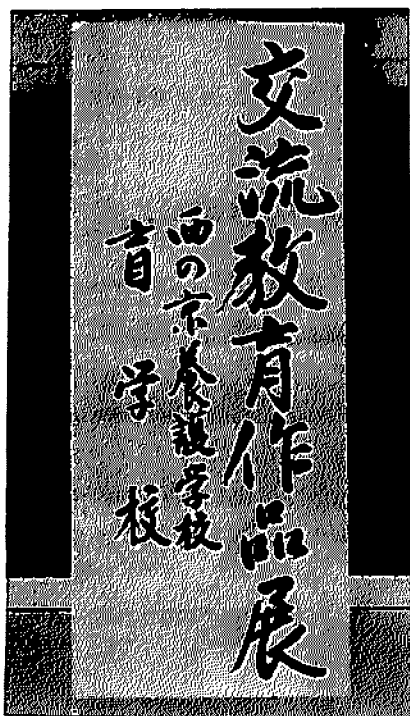 交流教育作品展
西の京養護学校
盲学校